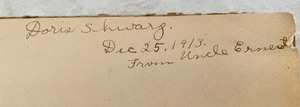 Doris Shwarz.
Dec 25, 1913.
From Uncle Ernest